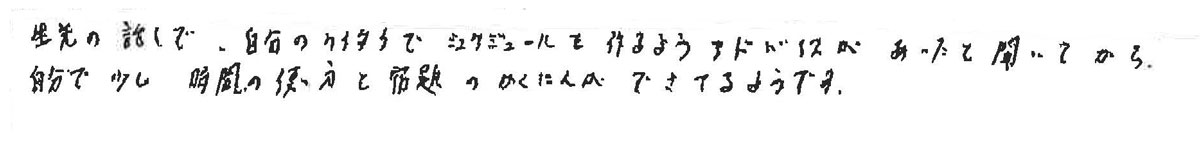 先生の話しで、自分のケイタイでスケジュールを作るようアドバイスがあったと聞いてから、
自分で少し時間の使い方と宿題のかくにんができてるようです。